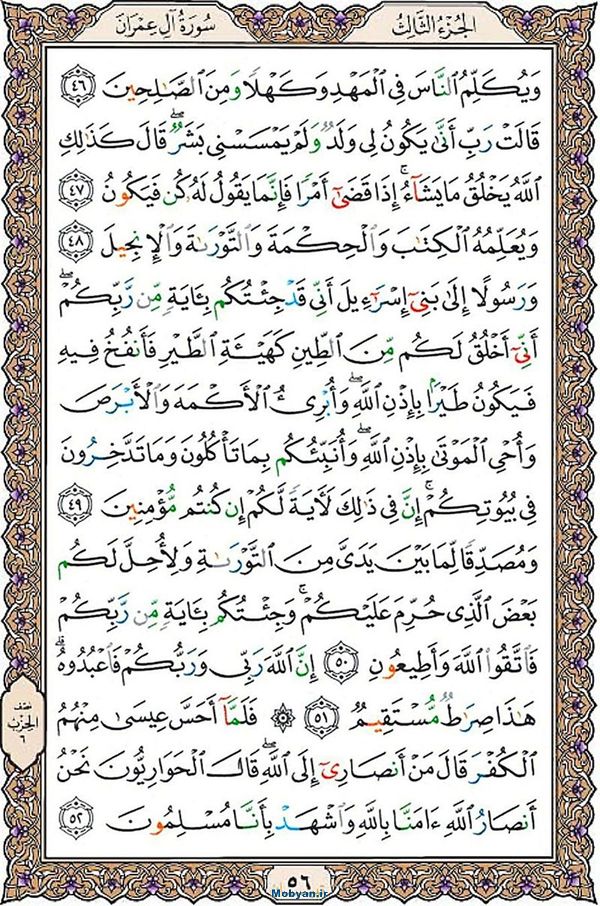 سُورَةُ آلِ عِمْرَانَ
الجُزْءُ الثَّالِثُ
وَيُكَلِّمُ ٱلنَّاسَ فِى ٱلْمَهْدِ وَكَهْلًا وَمِنَ ٱلصَّـٰلِحِينَ ٤٦
قَالَتْ رَبِّ أَنَّىٰ يَكُونُ لِى وَلَدٌ وَلَمْ يَمْسَسْنِى بَشَرٌ ۖ قَالَ كَذَٰلِكِ
ٱللَّهُ يَخْلُقُ مَا يَشَآءُ ۚ إِذَا قَضَىٰٓ أَمْرًا فَإِنَّمَا يَقُولُ لَهُۥ كُن فَيَكُونُ ٤٧
وَيُعَلِّمُهُ ٱلْكِتَـٰبَ وَٱلْحِكْمَةَ وَٱلتَّوْرَىٰةَ وَٱلْإِنجِيلَ ٤٨
وَرَسُولًا إِلَىٰ بَنِىٓ إِسْرَٰٓءِيلَ أَنِّى قَدْ جِئْتُكُم بِـَٔايَةٍ مِّن رَّبِّكُمْ ۖ
أَنِّىٓ أَخْلُقُ لَكُم مِّنَ ٱلطِّينِ كَهَيْـَٔةِ ٱلطَّيْرِ فَأَنفُخُ فِيهِ
فَيَكُونُ طَيْرًۢا بِإِذْنِ ٱللَّهِ ۖ وَأُبْرِئُ ٱلْأَكْمَهَ وَٱلْأَبْرَصَ
وَأُحْىِ ٱلْمَوْتَىٰ بِإِذْنِ ٱللَّهِ ۖ وَأُنَبِّئُكُم بِمَا تَأْكُلُونَ وَمَا تَدَّخِرُونَ
فِى بُيُوتِكُمْ ۚ إِنَّ فِى ذَٰلِكَ لَـَٔايَةً لَّكُمْ إِن كُنتُم مُّؤْمِنِينَ ٤٩
وَمُصَدِّقًا لِّمَا بَيْنَ يَدَىَّ مِنَ ٱلتَّوْرَىٰةِ وَلِأُحِلَّ لَكُم
بَعْضَ ٱلَّذِى حُرِّمَ عَلَيْكُمْ ۚ وَجِئْتُكُم بِـَٔايَةٍ مِّن رَّبِّكُمْ
فَٱتَّقُوا۟ ٱللَّهَ وَأَطِيعُونِ ٥٠ إِنَّ ٱللَّهَ رَبِّى وَرَبُّكُمْ فَٱعْبُدُوهُ ۗ
هَـٰذَا صِرَٰطٌ مُّسْتَقِيمٌ ٥١ ۞ فَلَمَّآ أَحَسَّ عِيسَىٰ مِنْهُمُ
ٱلْكُفْرَ قَالَ مَنْ أَنصَارِىٓ إِلَى ٱللَّهِ ۖ قَالَ ٱلْحَوَارِيُّونَ نَحْنُ
أَنصَارُ ٱللَّهِ ءَامَنَّا بِٱللَّهِ وَٱشْهَدْ بِأَنَّا مُسْلِمُونَ ٥٢
نصف
الحزب
٦
٥٦
Mobyan.ir